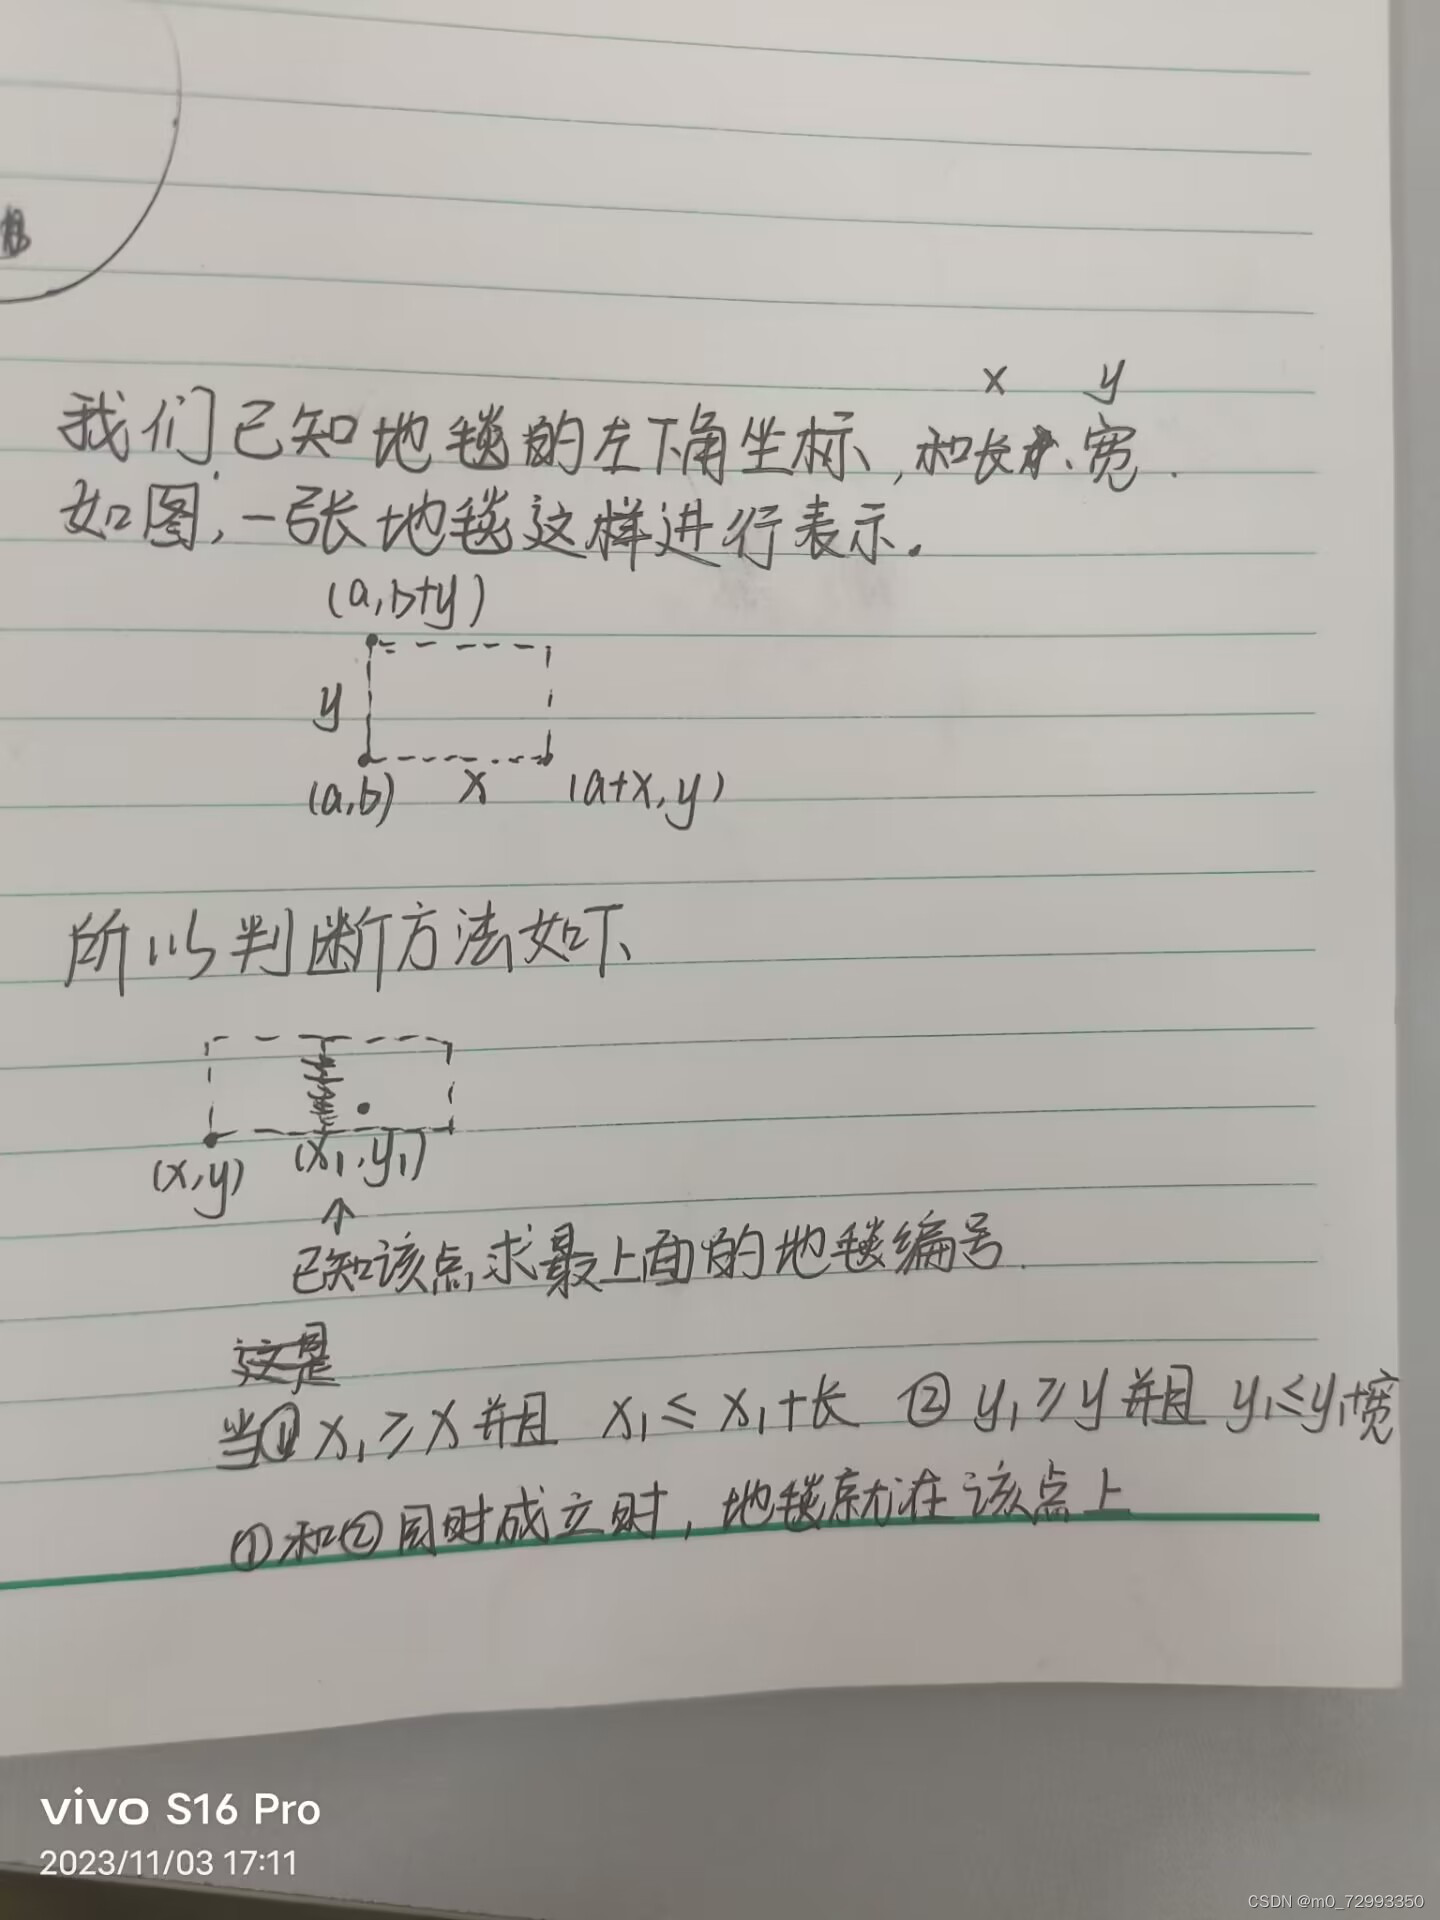 x y
我们已知地毯的左下角坐标，和长、宽.
如图，一张地毯这样进行表示.
(a,b+y)
y
(a,b) x (a+x,y)
所以判断方法如下、
(x,y) (x₁,y₁)
↑
已知该点求最上面的地毯编号.
这是
当① x₁≥x并且 x₁≤x₁+长 ② y₁≥y并且 y₁≤y₁+宽
①和②同时成立时，地毯就在该点上
vivo S16 Pro
2023/11/03 17:11
CSDN @m0_72993350